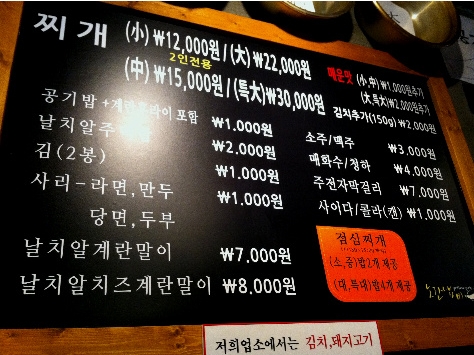 찌개 (小) ₩12,000원 / (大) ₩22,000원
2인전용
(中) ₩15,000원 / (특大) ₩30,000원
매운맛 (小,中) ₩1,000원추가
(大,특大) ₩2,000원추가
김치추가(150g) ₩2,000원
공기밥 +계란후라이 포함 ₩1.000원
날치알주먹밥 ₩2.000원
김(2봉) ₩1.000원
사리-라면,만두 ₩1.000원
당면,두부
날치알계란말이 ₩7.000원
날치알치즈계란말이 ₩8,000원
소주/맥주 ₩3,000원
매화수/청하 ₩4.000원
주전자막걸리 ₩7,000원
사이다/콜라(캔) ₩1,000원
점심찌개
(소,중)밥2개 제공
(대,특대)밥4개 제공
저희업소에서는 김치,돼지고기